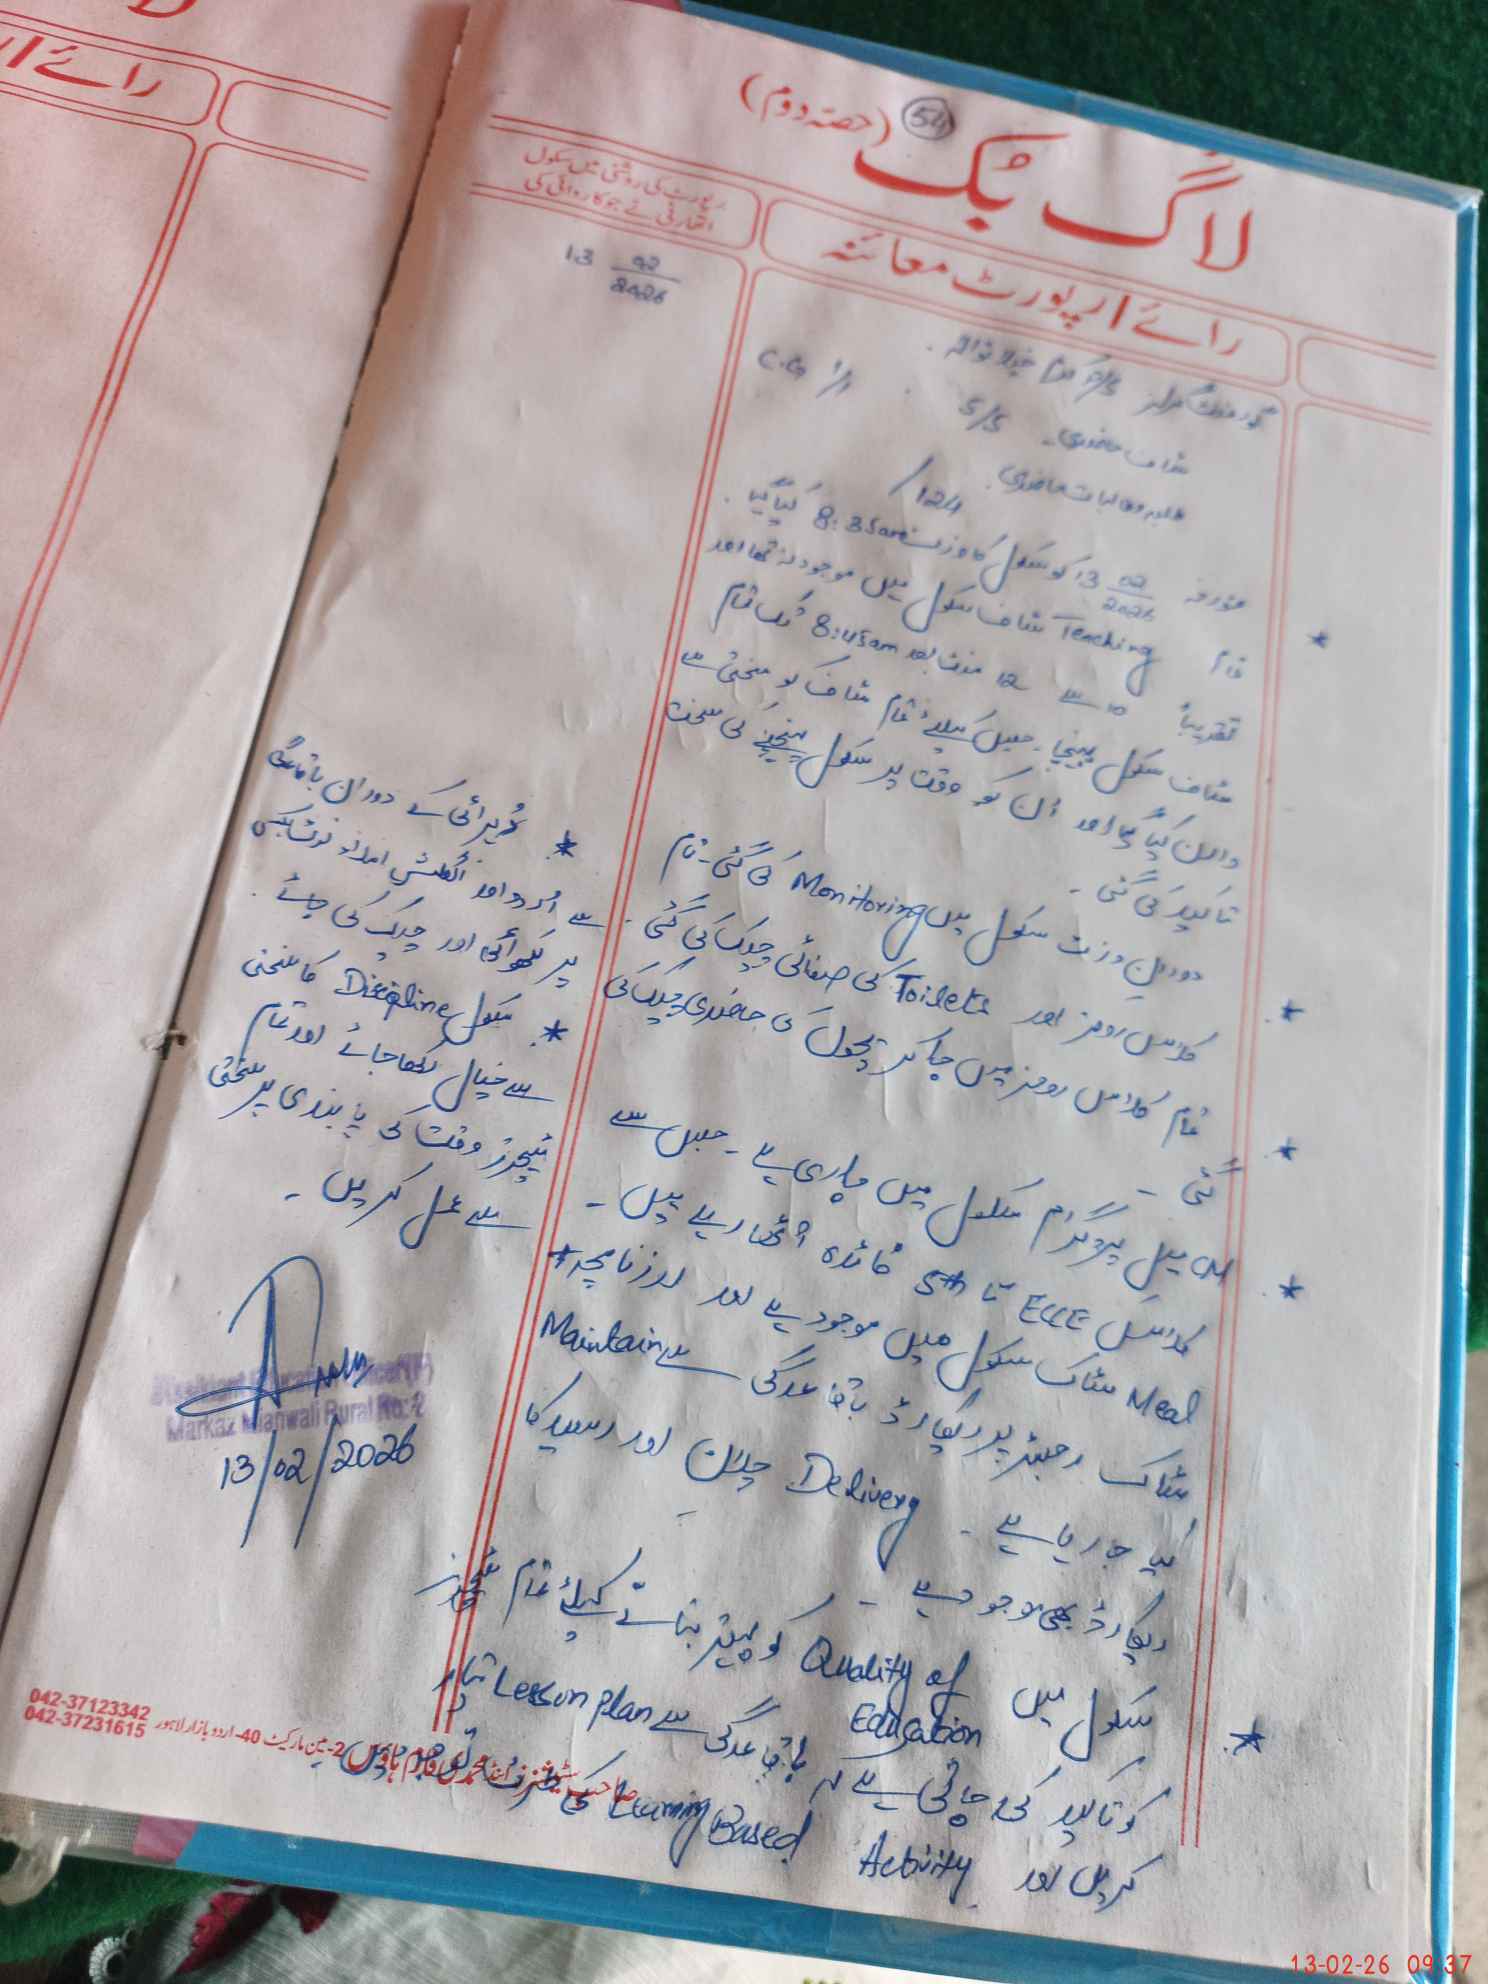 لاگ بک (حصہ دوم)
54
رائے / رپورٹ معائنہ
رپورٹ کی روشنی میں سکول
اتھارٹی نے جو کاروائی کی
رائے ا
13 02/2026
گورنمنٹ گرلز P/S
سٹاف حاضری۔ 5/5 C.G 1/1
طلبہ و طالبات حاضری۔ 124/
مورخہ 13 02/2026 کو سکول کا وزٹ 8:35am کیا گیا۔
تمام Teaching سٹاف سکول میں موجود نہ تھا اور
تقریباً 10 سے 12 منٹ بعد 8:45am تک تمام
سٹاف سکول پہنچا۔ جس کیلئے تمام سٹاف کو سختی سے
وارن کیا گیا اور اُن کو وقت پر سکول پہنچنے کی سخت
تاکید کی گئی۔
دوران وزٹ سکول میں Monitoring کی گئی۔ تمام
کلاس رومز اور Toilets کی صفائی چیک کی گئی۔
تمام کلاس رومز میں جا کر بچوں کی حاضری چیک کی
گئی۔
CM میل پروگرام سکول میں جاری ہے۔ جس سے
کلاس ECCE تا 5th فائدہ اٹھا رہے ہیں۔
Meal سٹاک سکول میں موجود ہے اور روزنامچہ +
سٹاک رجسٹر پر ریکارڈ باقاعدگی سے Maintain
کیا جا رہا ہے۔ Delivery چلان اور رسید کا
ریکارڈ بھی موجود ہے۔
سکول میں Quality of Education کو بہتر بنانے کیلئے تمام ٹیچرز
کو تاکید کی جاتی ہے کہ باقاعدگی سے Lesson plan تیار
کریں اور Activity Based Learning کی طرف
* تحریر ائی کے دوران باقاعدگی
سے اُردو اور انگلش املاء نوٹ بکس
پر لکھوائی اور چیک کی جائے۔
* سکول Discipline کا سختی
سے خیال رکھا جائے اور تمام
ٹیچرز وقت کی پابندی پر سختی
سے عمل کریں۔
Assistant Education Officer(F)
Markaz Mianwali Rural No: 2
13/02/2026
042-37123342
042-37231615
2-مین مارکیٹ 40-اردو بازار لاہور
13-02-26 09:37